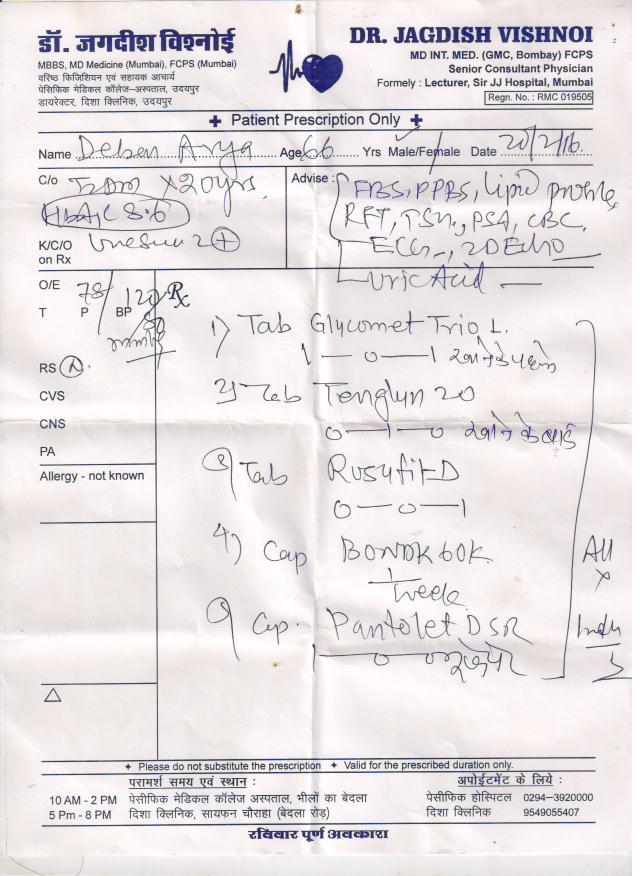 डॉ. जगदीश विश्नोई
MBBS, MD Medicine (Mumbai), FCPS (Mumbai)
वरिष्ठ फिजिशियन एवं सहायक आचार्य
पेसिफिक मेडिकल कॉलेज–अस्पताल, उदयपुर
डायरेक्टर, दिशा क्लिनिक, उदयपुर
DR. JAGDISH VISHNOI
MD INT. MED. (GMC, Bombay) FCPS
Senior Consultant Physician
Formely : Lecturer, Sir JJ Hospital, Mumbai
Regn. No. : RMC 019505
Patient Prescription Only
Name Age 66 Yrs Male/Female Date 20/2/16
C/o T2DM x 20yrs
HbA1C 8.6
K/C/O
on Rx
Advise : FBS, PPBS, Lipid profile,
RFT, TSH, PSA, CBC,
ECG, 2D Echo
Uric Acid
O/E 78/ 120/80 Rx
T P BP
RS N
CVS
CNS
PA
Allergy - not known
Δ
1) Tab Glycomet Trio
1 — 0 — 1 खाने के पहले
2) Tab Tenglyn 20
0 — 1 — 0 खाने के बाद
3) Tab Rosufit-D
0 — 0 — 1
4) Cap BONDK 60K
1/week
5) Cap. Pantolet DSR
1 — 0
All
x
✦ Please do not substitute the prescription ✦ Valid for the prescribed duration only.
परामर्श समय एवं स्थान :
10 AM - 2 PM पेसीफिक मेडिकल कॉलेज अस्पताल, भीलों का बेदला
5 Pm - 8 PM दिशा क्लिनिक, सायफन चौराहा (बेदला रोड़)
अपोईटमेंट के लिये :
पेसीफिक होस्पिटल 0294–3920000
दिशा क्लिनिक 9549055407
रविवार पूर्ण अवकाश